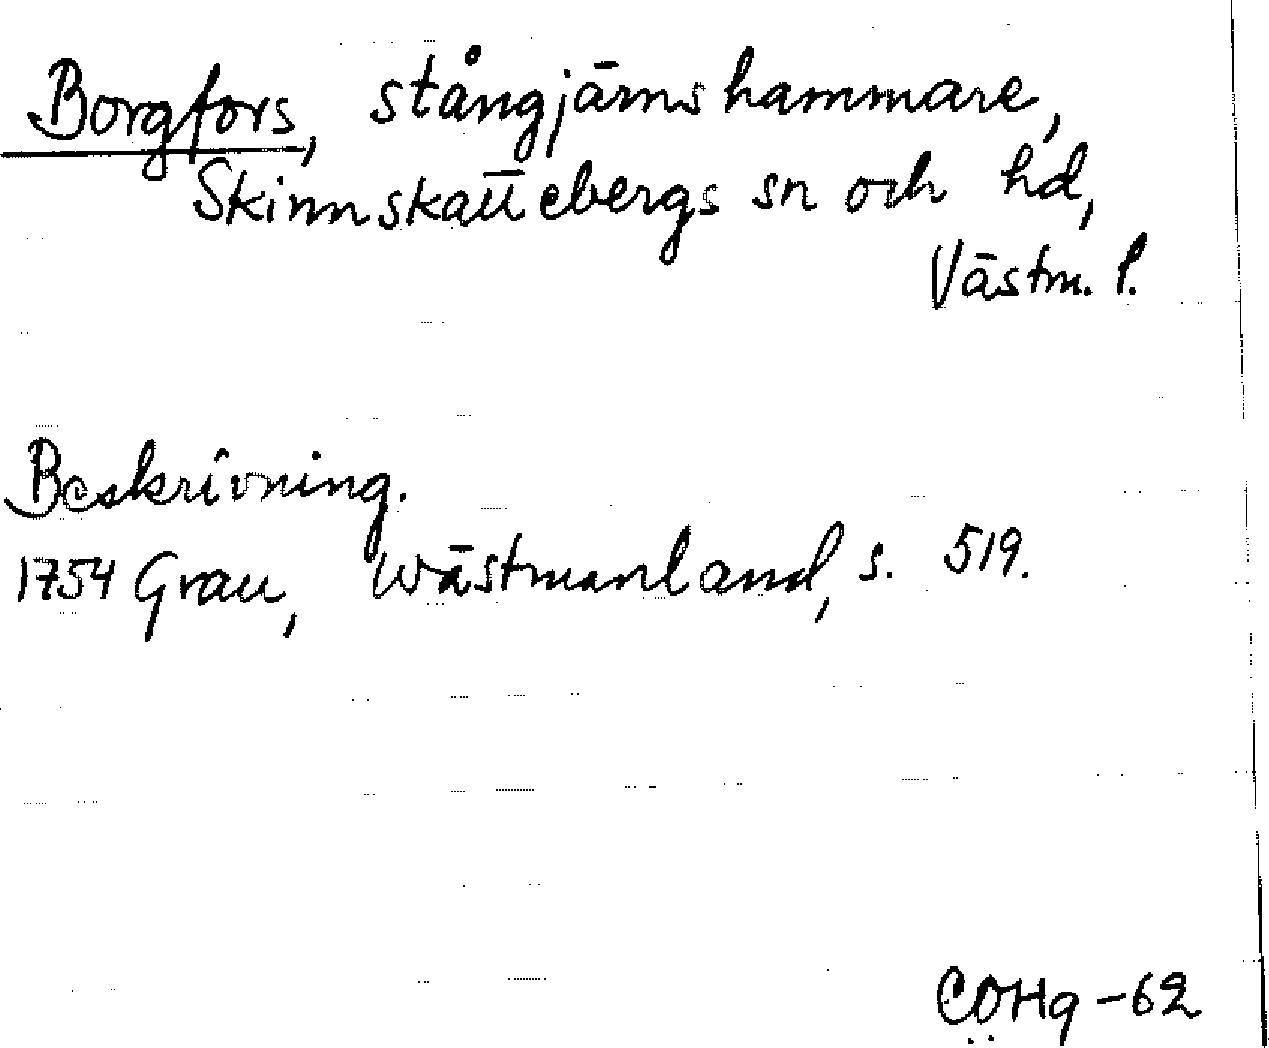 Borgfors, stångjärnshammare,
Skinnskattebergs sn och hd,
Västm. l.
Beskrivning.
1754 Grau, Wästmanland, s. 519.
CÖHg-62